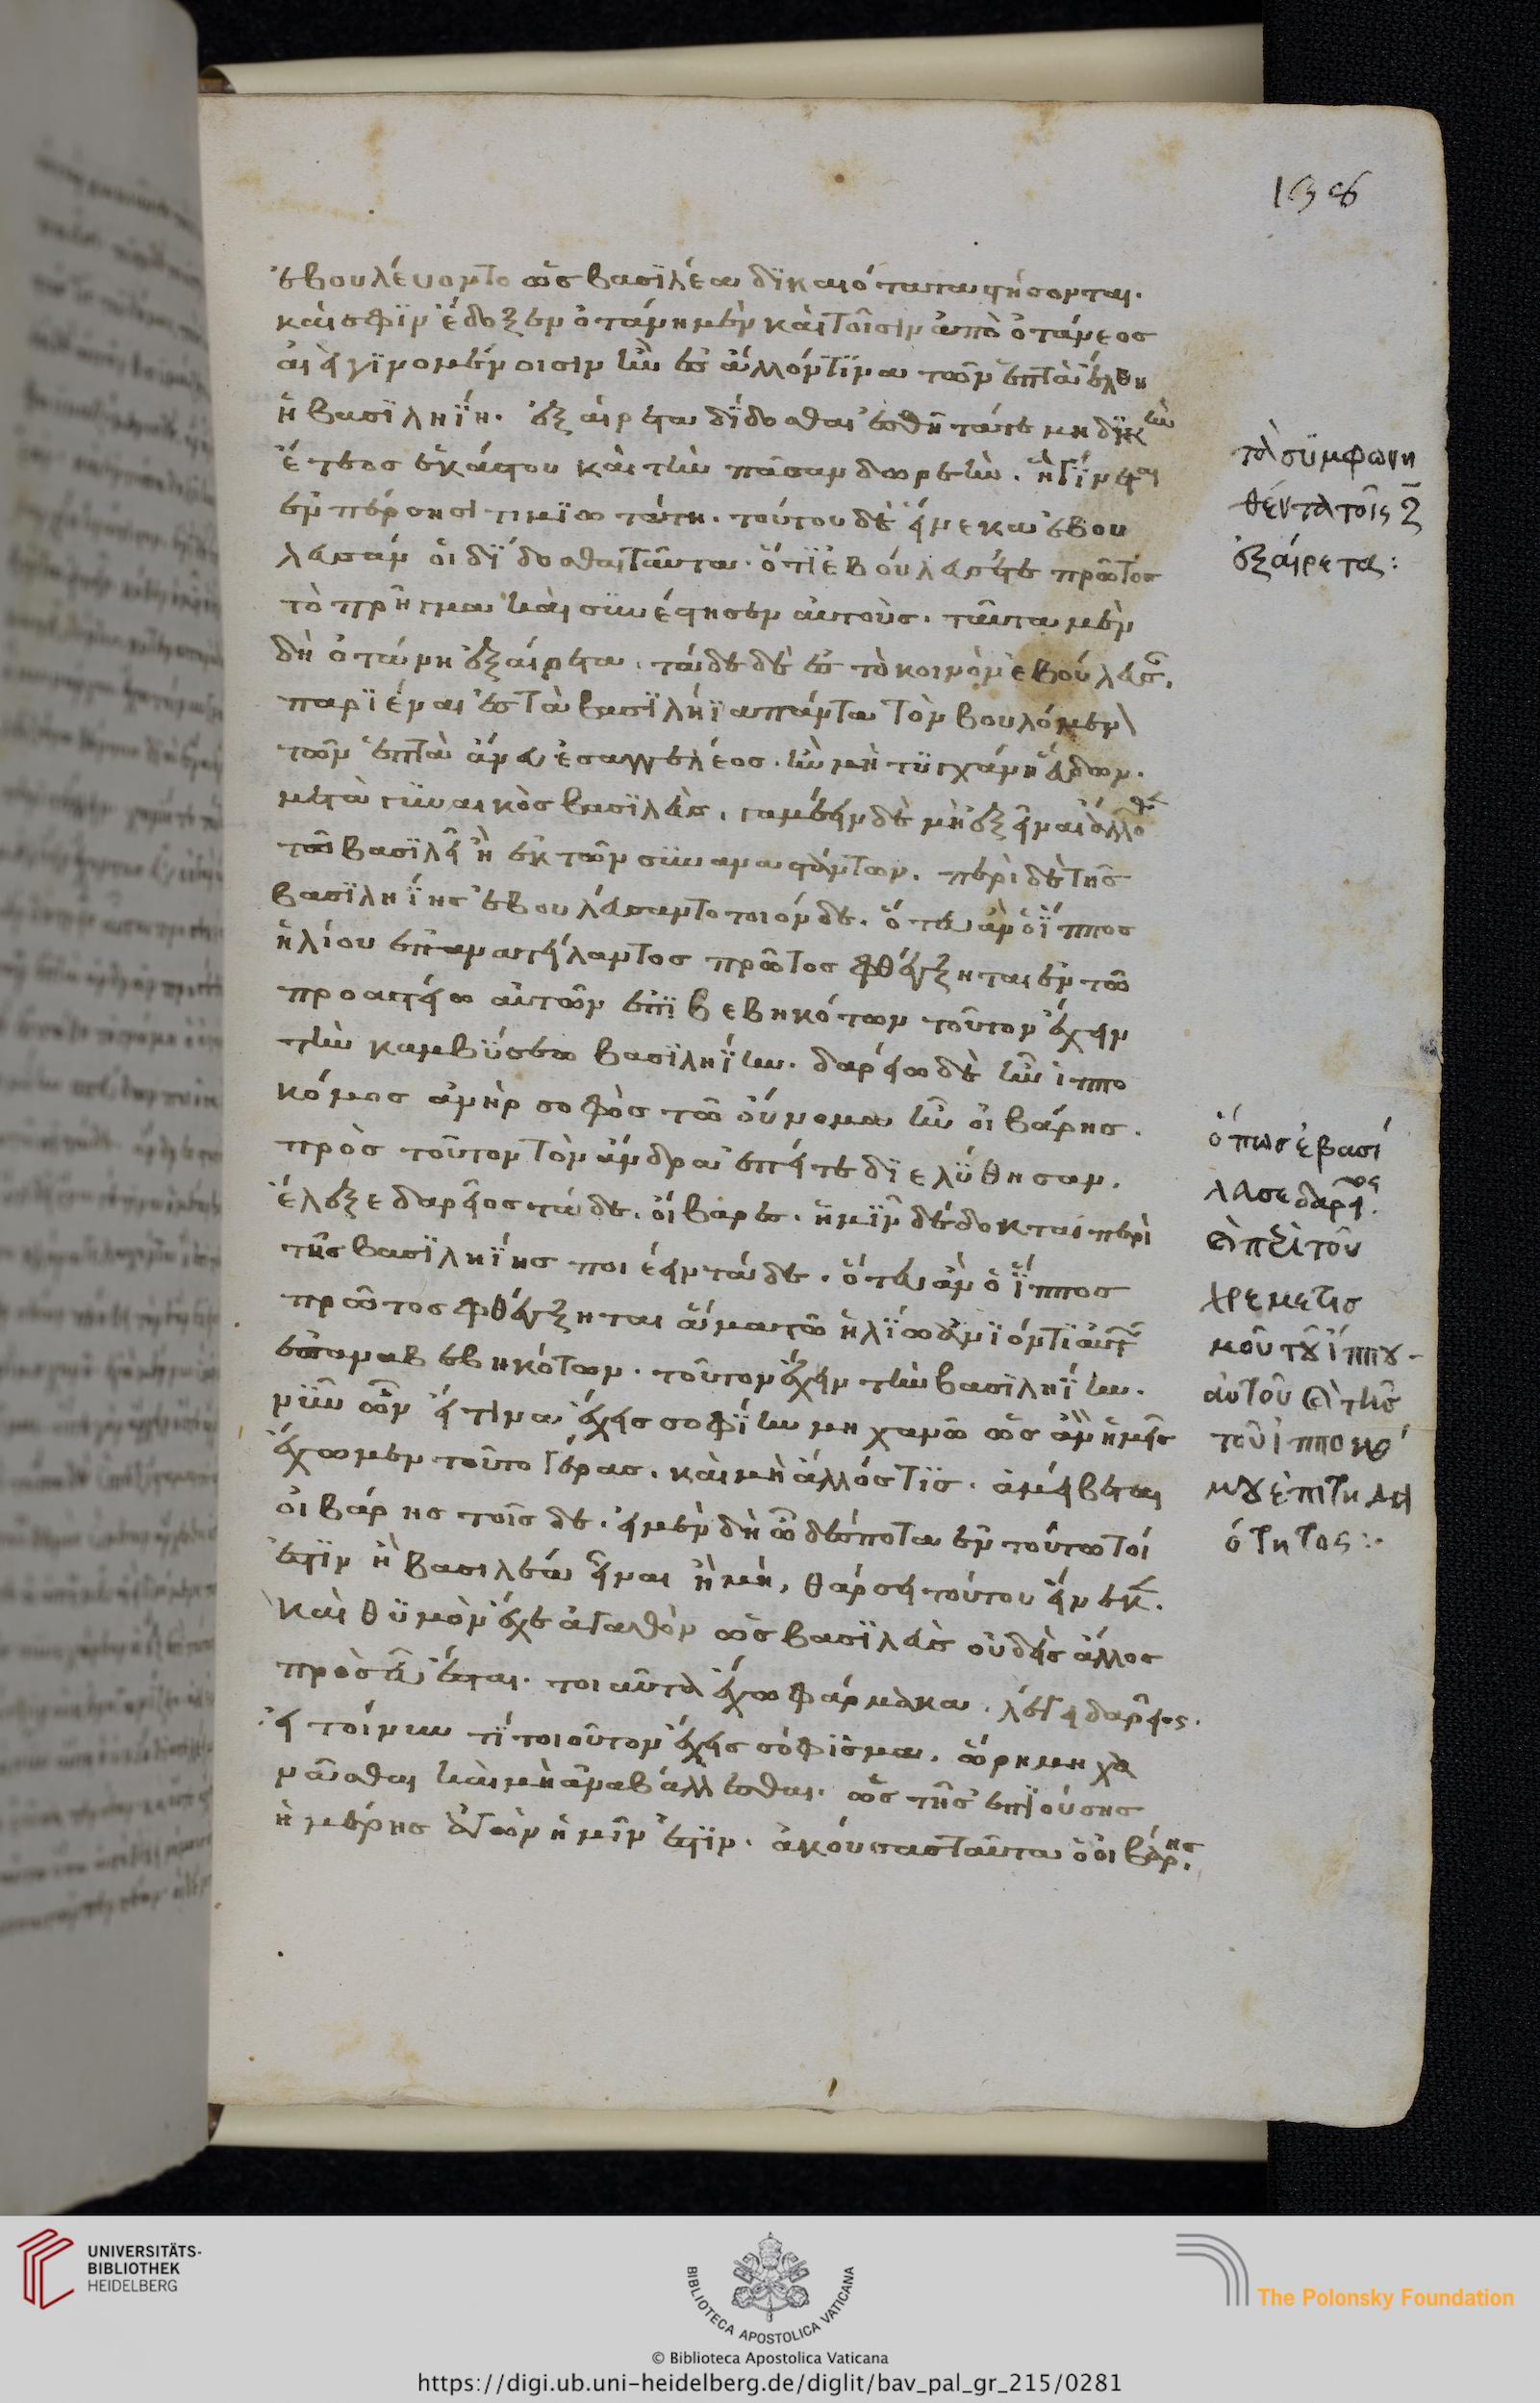 138
ἐβουλεύοντο ὡς βασιλέα δϊκαιότατα στήσονται.
καὶ σφϊν ἔδοξεν ὀτάνη μὲν καὶ τοῖσιν ἀπὸ ὀτάνεος
αἰεὶ γϊνομένοισιν ἢν ἐς ἄλλόν τϊνα τῶν ἑπτὰ ἔλθη
ἡ βασϊληΐη. ἐξαίρετα δΐδοσθαι ἐσθῆτά τε μηδϊκὴν
ἔτεος ἑκάστου καὶ τὴν πᾶσαν δωρεὴν. ἣ γΐνεται
ἐν πέρσησϊ τιμϊωτάτη. τούτου δὲ εἵνεκα ἐβού
λευσάν οἱ δΐδοσθαι ταῦτα. ὅτϊ ἐβούλευσέ τε πρῶτος
τὸ πρῆγμα καὶ συνέστησεν αὐτοὺς. ταῦτα μὲν
δὴ ὀτάνη ἐξαίρετα. τάδε δὲ ἐς τὸ κοινὸν ἐβούλευσαν.
παρϊέναι ἐς τὰ βασϊλήϊα πάντα τὸν βουλόμενον
τῶν ἑπτὰ ἄνευ ἐσαγγελέος. ἢν μὴ τϋγχάνη εὕδων
μετὰ γϋναικὸς βασϊλεὺς. γαμέειν δὲ μὴ ἐξεῖναι ἄλλοθεν
τῶ βασϊλεῖ ἢ ἐκ τῶν συναναστάντων. περὶ δὲ τῆς
βασϊληΐης ἐβουλεύσαντο τοιόνδε. ὅτευ ἂν ὁ ΐππος
ἡλίου ἐπανατείλαντος πρῶτος φθέγξηται ἐν τῶ
προαστείω αὐτῶν ἐπϊβεβηκότων τοῦτον ἔχειν
τὴν καμβύσεω βασϊληΐην. δαρείω δὲ ἦν ἱππο
κόμος ἀνὴρ σοφὸς τῶ οὔνομα ἦν οἰβάρης.
πρὸς τοῦτον τὸν ἄνδρα ἐπεί τε δϊελύθησαν.
ἔλεξε δαρεῖος τάδε. οἴβαρες. ἡμῖν δέδοκται περὶ
τῆς βασϊληΐης ποιέειν τάδε. ὅτευ ἂν ὁ ΐππος
πρῶτος φθέγξηται ἅμα τῶ ἡλΐω ἀνϊόντϊ αὐτῶν
ἐπαναβεβηκότων. τοῦτον ἔχειν τὴν βασϊληΐην.
νῦν ὦν εἴ τινα ἔχεις σοφΐην μηχανῶ ὡς ἂν ἡμεῖς
ἔχωμεν τοῦτο γέρας. καὶ μὴ ἄλλός τϊς. ἀμείβεται
οἰβάρης τοῖς δε. εἰ μὲν δὴ ὦ δέσποτα ἐν τούτω τοί
ἐστϊν ἢ βασϊλέα εἶναι ἢ μὴ, θάρσει τούτου εἵνεκεν.
καὶ θϋμὸν ἔχε ἀγαθὸν ὡς βασϊλεὺς οὐδεὶς ἄλλος
πρὸ σεῦ ἔσται. τοιαῦτα ἔχω φάρμακα. λέγει δαρεῖος.
εἰ τοίνυν τϊ τοιοῦτον ἔχεις σόφϊσμα. ὥρη μηχα
νᾶσθαι καὶ μὴ ἀναβάλλεσθαι. ὡς τῆς ἐπϊούσης
ἡμέρης ὁ ἀγὼν ἡμῖν ἐστϊν. ἀκούσας ταῦτα ὁ οἰβάρης.
τὰ σϋμφωνη
θέντα τοῖς ζ
ἐξαίρετα:
ὅπως ἐβασί
λευσε δαρεῖος.
καὶ περὶ τοῦ
χρεμετισ
μοῦ τοῦ ἵππου
αὐτοῦ καὶ τῆς
τοῦ ἱπποκό
μου ἐπιτηδει
ότητος:
UNIVERSITÄTS-
BIBLIOTHEK
HEIDELBERG
BIBLIOTECA APOSTOLICA VATICANA
The Polonsky Foundation
© Biblioteca Apostolica Vaticana
https://digi.ub.uni-heidelberg.de/diglit/bav_pal_gr_215/0281